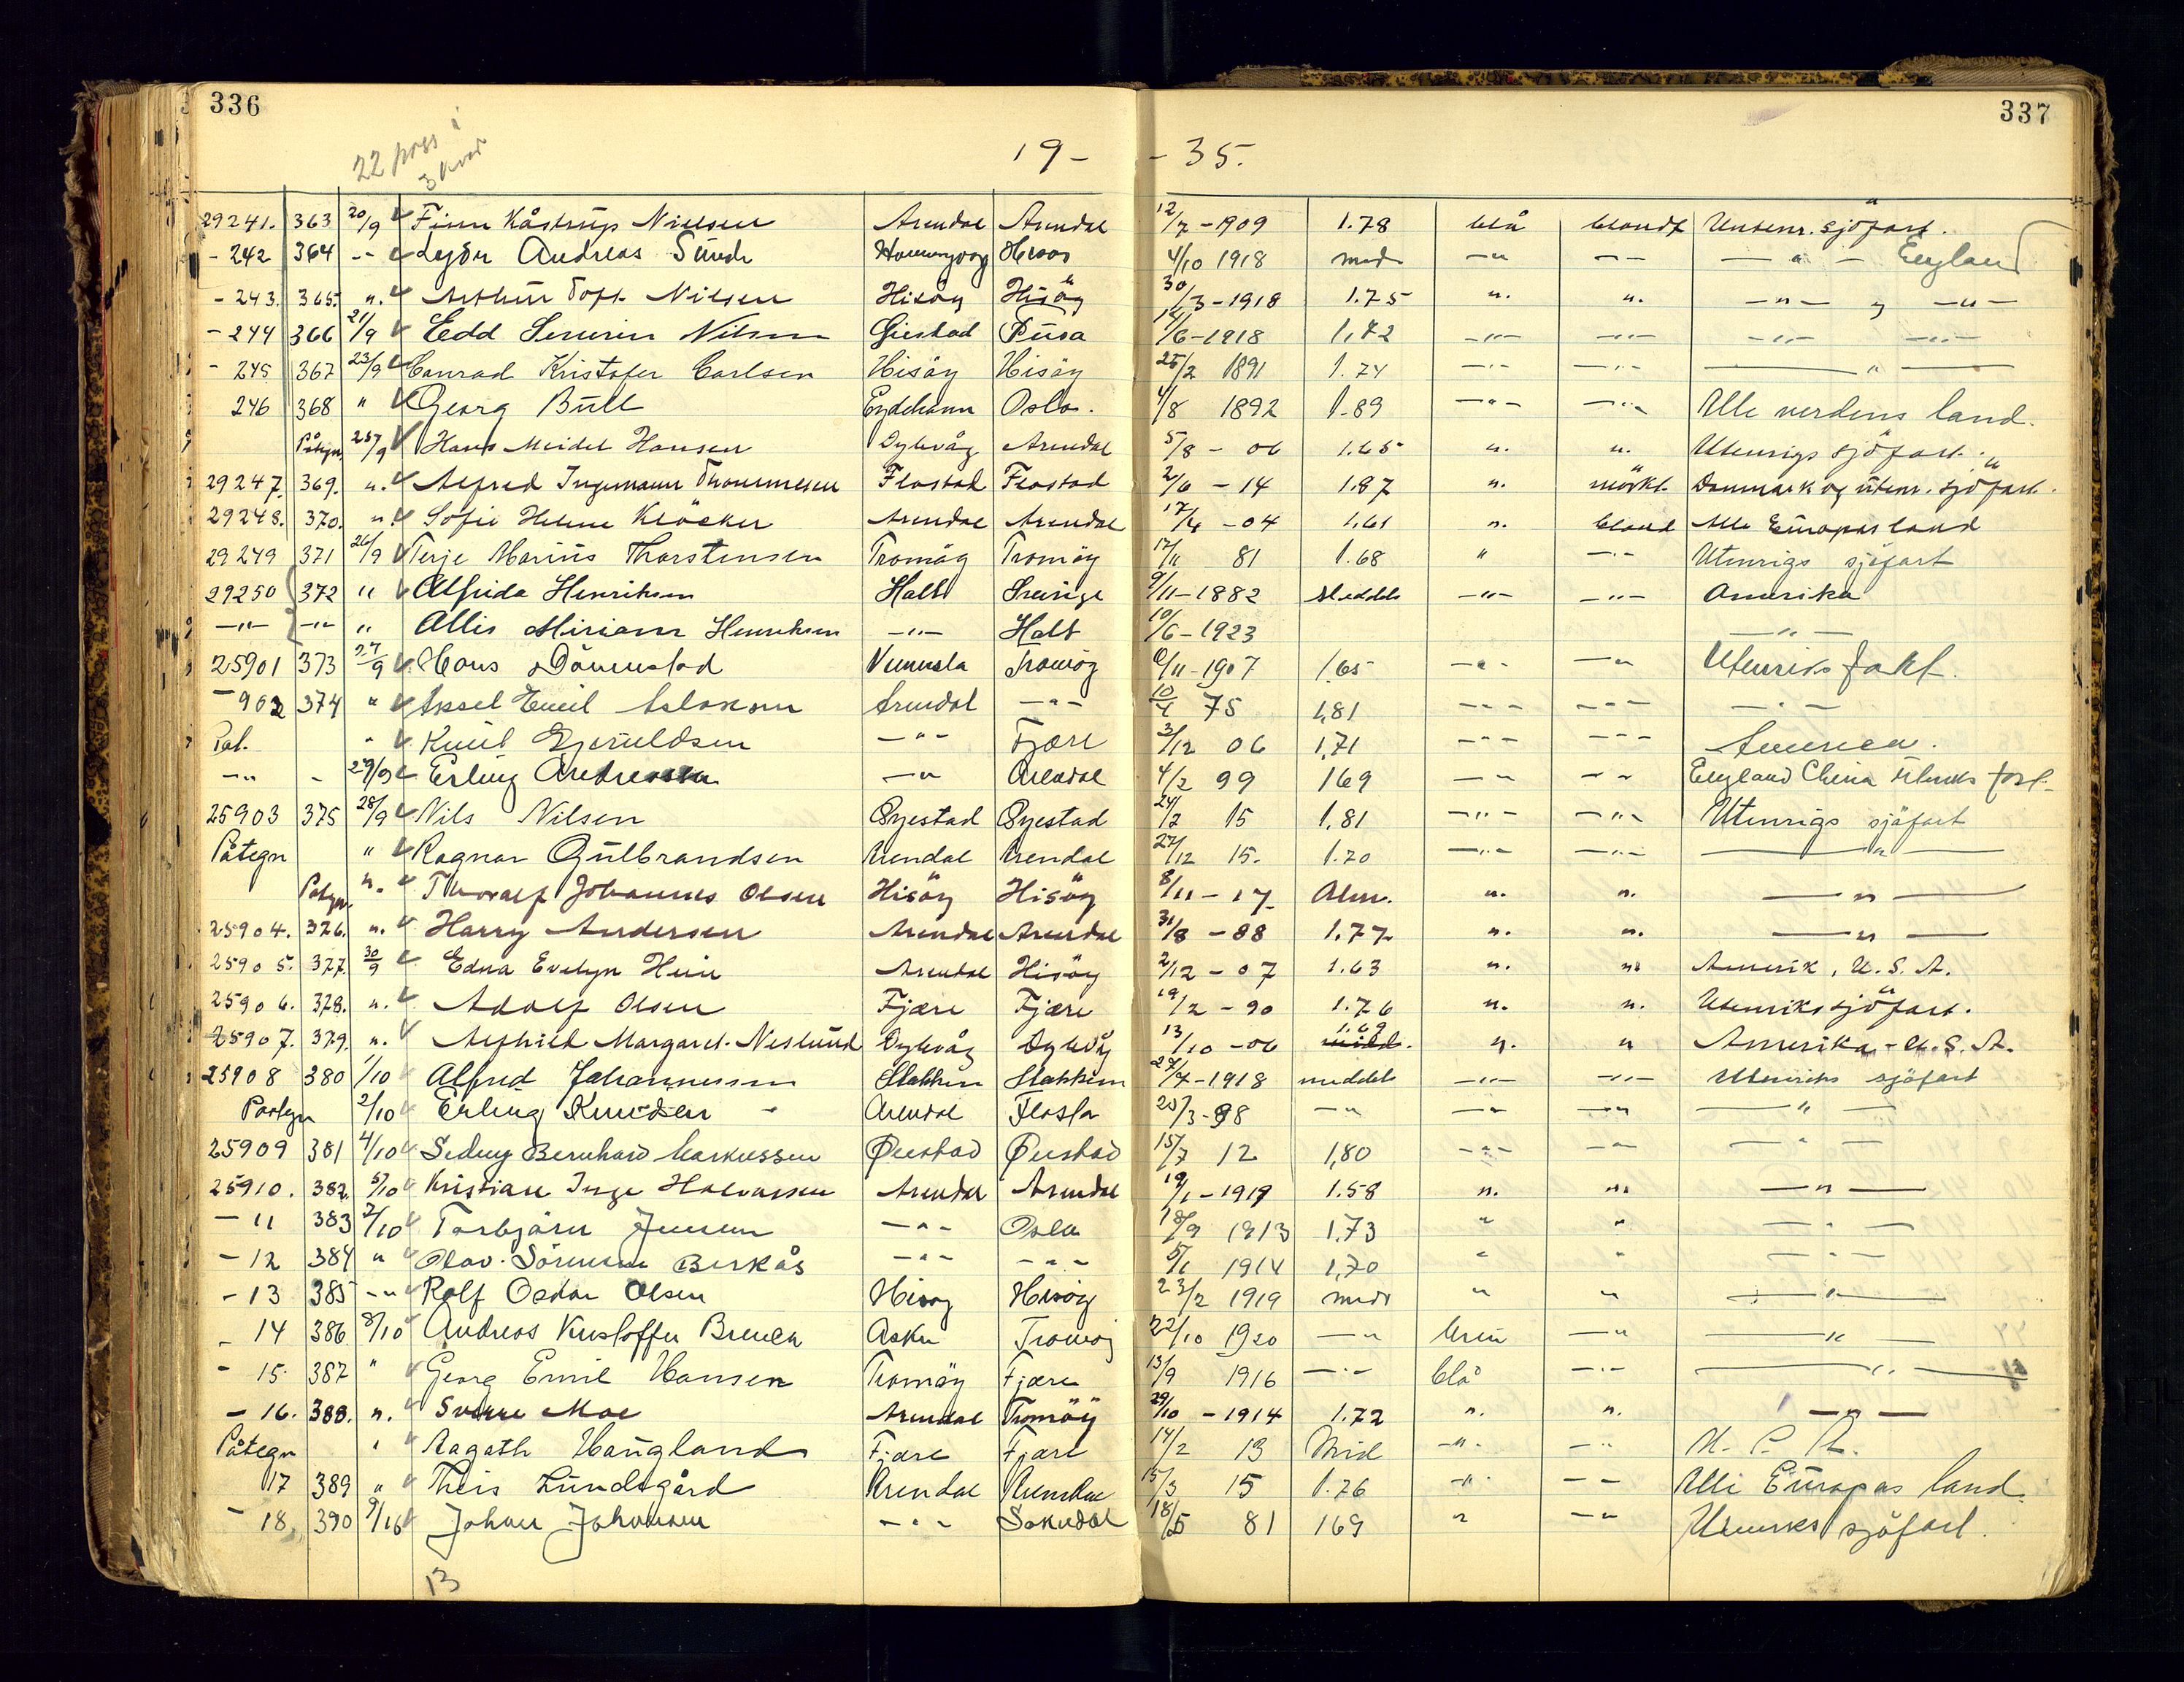 336
337
22 pass i
3 kvar
19- -35.
29241. 363 20/9 Finn Kåstrup Nielsen Arendal Arendal 12/7-1909 1.78 blå blondt Utenr. sjöfart.
-242 364 -"- Andreas Sunde 4/10 1918 -"- -"- -"- England
-243. 365. ". Arthur Toft Nilsen Hisöy Hisöy 30/3-1918 1.75 ". ". -"- -"-
-244 366 21/9 Edd Severin Nilsen Giestad Pusa /6-1918 1,72 -"- -"- -"- -"-
-245 367 23/9 Conrad Kristofer Carlsen Hisöy Hisöy 25/2 1891 1.74 -"- -"- -"-
246 368 " Georg Bull Eydehavn Oslo. 4/8 1892 1.89 -"- -"- Alle verdens land.
Påtegn. 25/9 Hans Meidel Hansen Dybvåg Arendal 5/8 - 06 1.65 ". ". Utenrigs sjöfart.
29247. 369. ". Alfred Ingemann Thommesen Flostad Flostad 2/6 - 14 1.87 ". mörkt. Danmark og utenr. sjöfart.
29248. 370. ". Sofie Helene Klöcker Arendal Arendal 17/4 - 04 1.61 ". blond Alle Europas land
29249 371 26/9 Terje Marius Thorstensen Tromöy Tromöy 17/11 81 1.68 " -"- Utenrigs sjöfart
29250 372 " Alfrida Henriksen Holt Sverige 9/11-1882 Meddels -"- -"- Amerika
-"- -"- " Allis Miriam Henriksen -"- Holt 10/6-1923 -"-
25901 373 27/9 Hans Dönnestad Vennesla Tromöy 6/11-1907 1.65 -"- -"- Utenriks fart.
-902 374 " Aksel Emil Aslaksen Arendal -"- 10/4 75 1,81 -"- -"- -"-
Pat. " Knut Gjeruldsen -"- Fjære 3/12 06 1,71 -"- -"- America.
-"- - 29/9 Erling Andreassen -"- Arendal 4/2 99 169 -"- -"- England China Utenriks fart.
25903 375 28/9 Nils Nilsen Öyestad Öyestad 24/2 15 1.81 -"- -"- Utenrigs sjöfart
Påtegn " Ragnar Gulbrandsen Arendal Arendal 27/12 15. 1.70 -"- -"- -"-
Påtegn. ". Thoralf Johannes Olsen Hisöy Hisöy 8/11 - 17 Alm. ". ". -"-
25904. 376. ". Harry Andersen Arendal Arendal 31/8 - 88 1.77 ". ". -"-
25905. 377. 30/9 Edna Evelyn Hein Arendal Hisöy 2/12 - 07 1.63 ". ". Amerik, U.S.A.
25906. 378. ". Adolf Olsen Fjære Fjære 19/2 - 90 1.76 ". ". Utenriks sjöfart.
25907. 379. ". Margaret Neslund Dybvåg Dybvåg 13/10 - 06 1.69 midd. ". " Amerika - U.S.A.
25908 380 1/10 Alfred Johannessen Stokken Stokken 27/7-1918 meddels -"- -"- Utenriks sjöfart
Paategn 2/10 Erling Knudsen Arendal Flosta 25/3-98 -"- -"- -"- -"-
25909 381 4/10 Sedny Bernhard Markussen Öiestad Öiestad 15/7 12 1,80 -"- -"- -"-
25910. 382. 5/10 Kristian Inge Halvorsen Arendal Arendal 19/1-1919 1.58 ". ". -"-
- 11 383 7/10 Torbjörn Jensen -"- Oslo 18/9 1913 1,73 " " -"-
- 12 384 " Olav Sörensen Berkås -"- -"- 5/1 1914 1,70 " " -"-
- 13 385 -"- Rolf Oskar Olsen Hisöy Hisöy 23/2 1919 " " -"-
- 14 386 8/10 Andreas Kristoffer Asker Tromöy 22/10 1920 -"- brun -"- -"-
- 15. 387 " Georg Emil Hansen Tromöy Fjære 13/9 1916 -"- blå -"- -"-
- 16. 388. ". Sverre Moe Arendal Tromöy 29/10 - 1914 1.72 ". ". -"-
Påtegn " Aagoth Haugland Fjære Fjære 14/2 13 Mid -"- -"- U.S.A.
17 389 " Theis Lundsgård Arendal Arendal 15/3 15 1.76 -"- -"- Alle Europas land.
- 18. 390 9/10 Johan Johansen -"- Sokndal 18/5 81 169 " -"- Utenriks sjöfart.
13